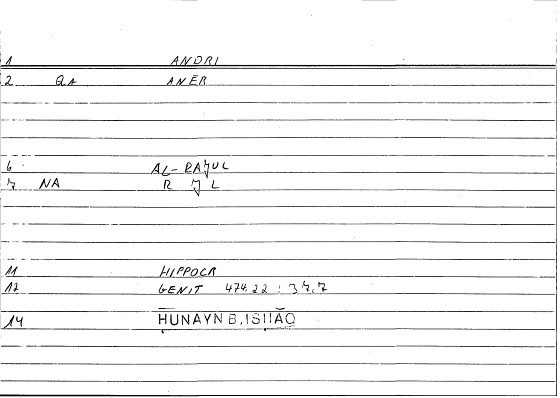 1 ANDRI
2 QA ANER
6 AL-RAJUL
7 NA R J L
11 HIPPOCR
12 GENIT 474.22 : 37,7
14 ḤUNAYN B. ISḤĀQ